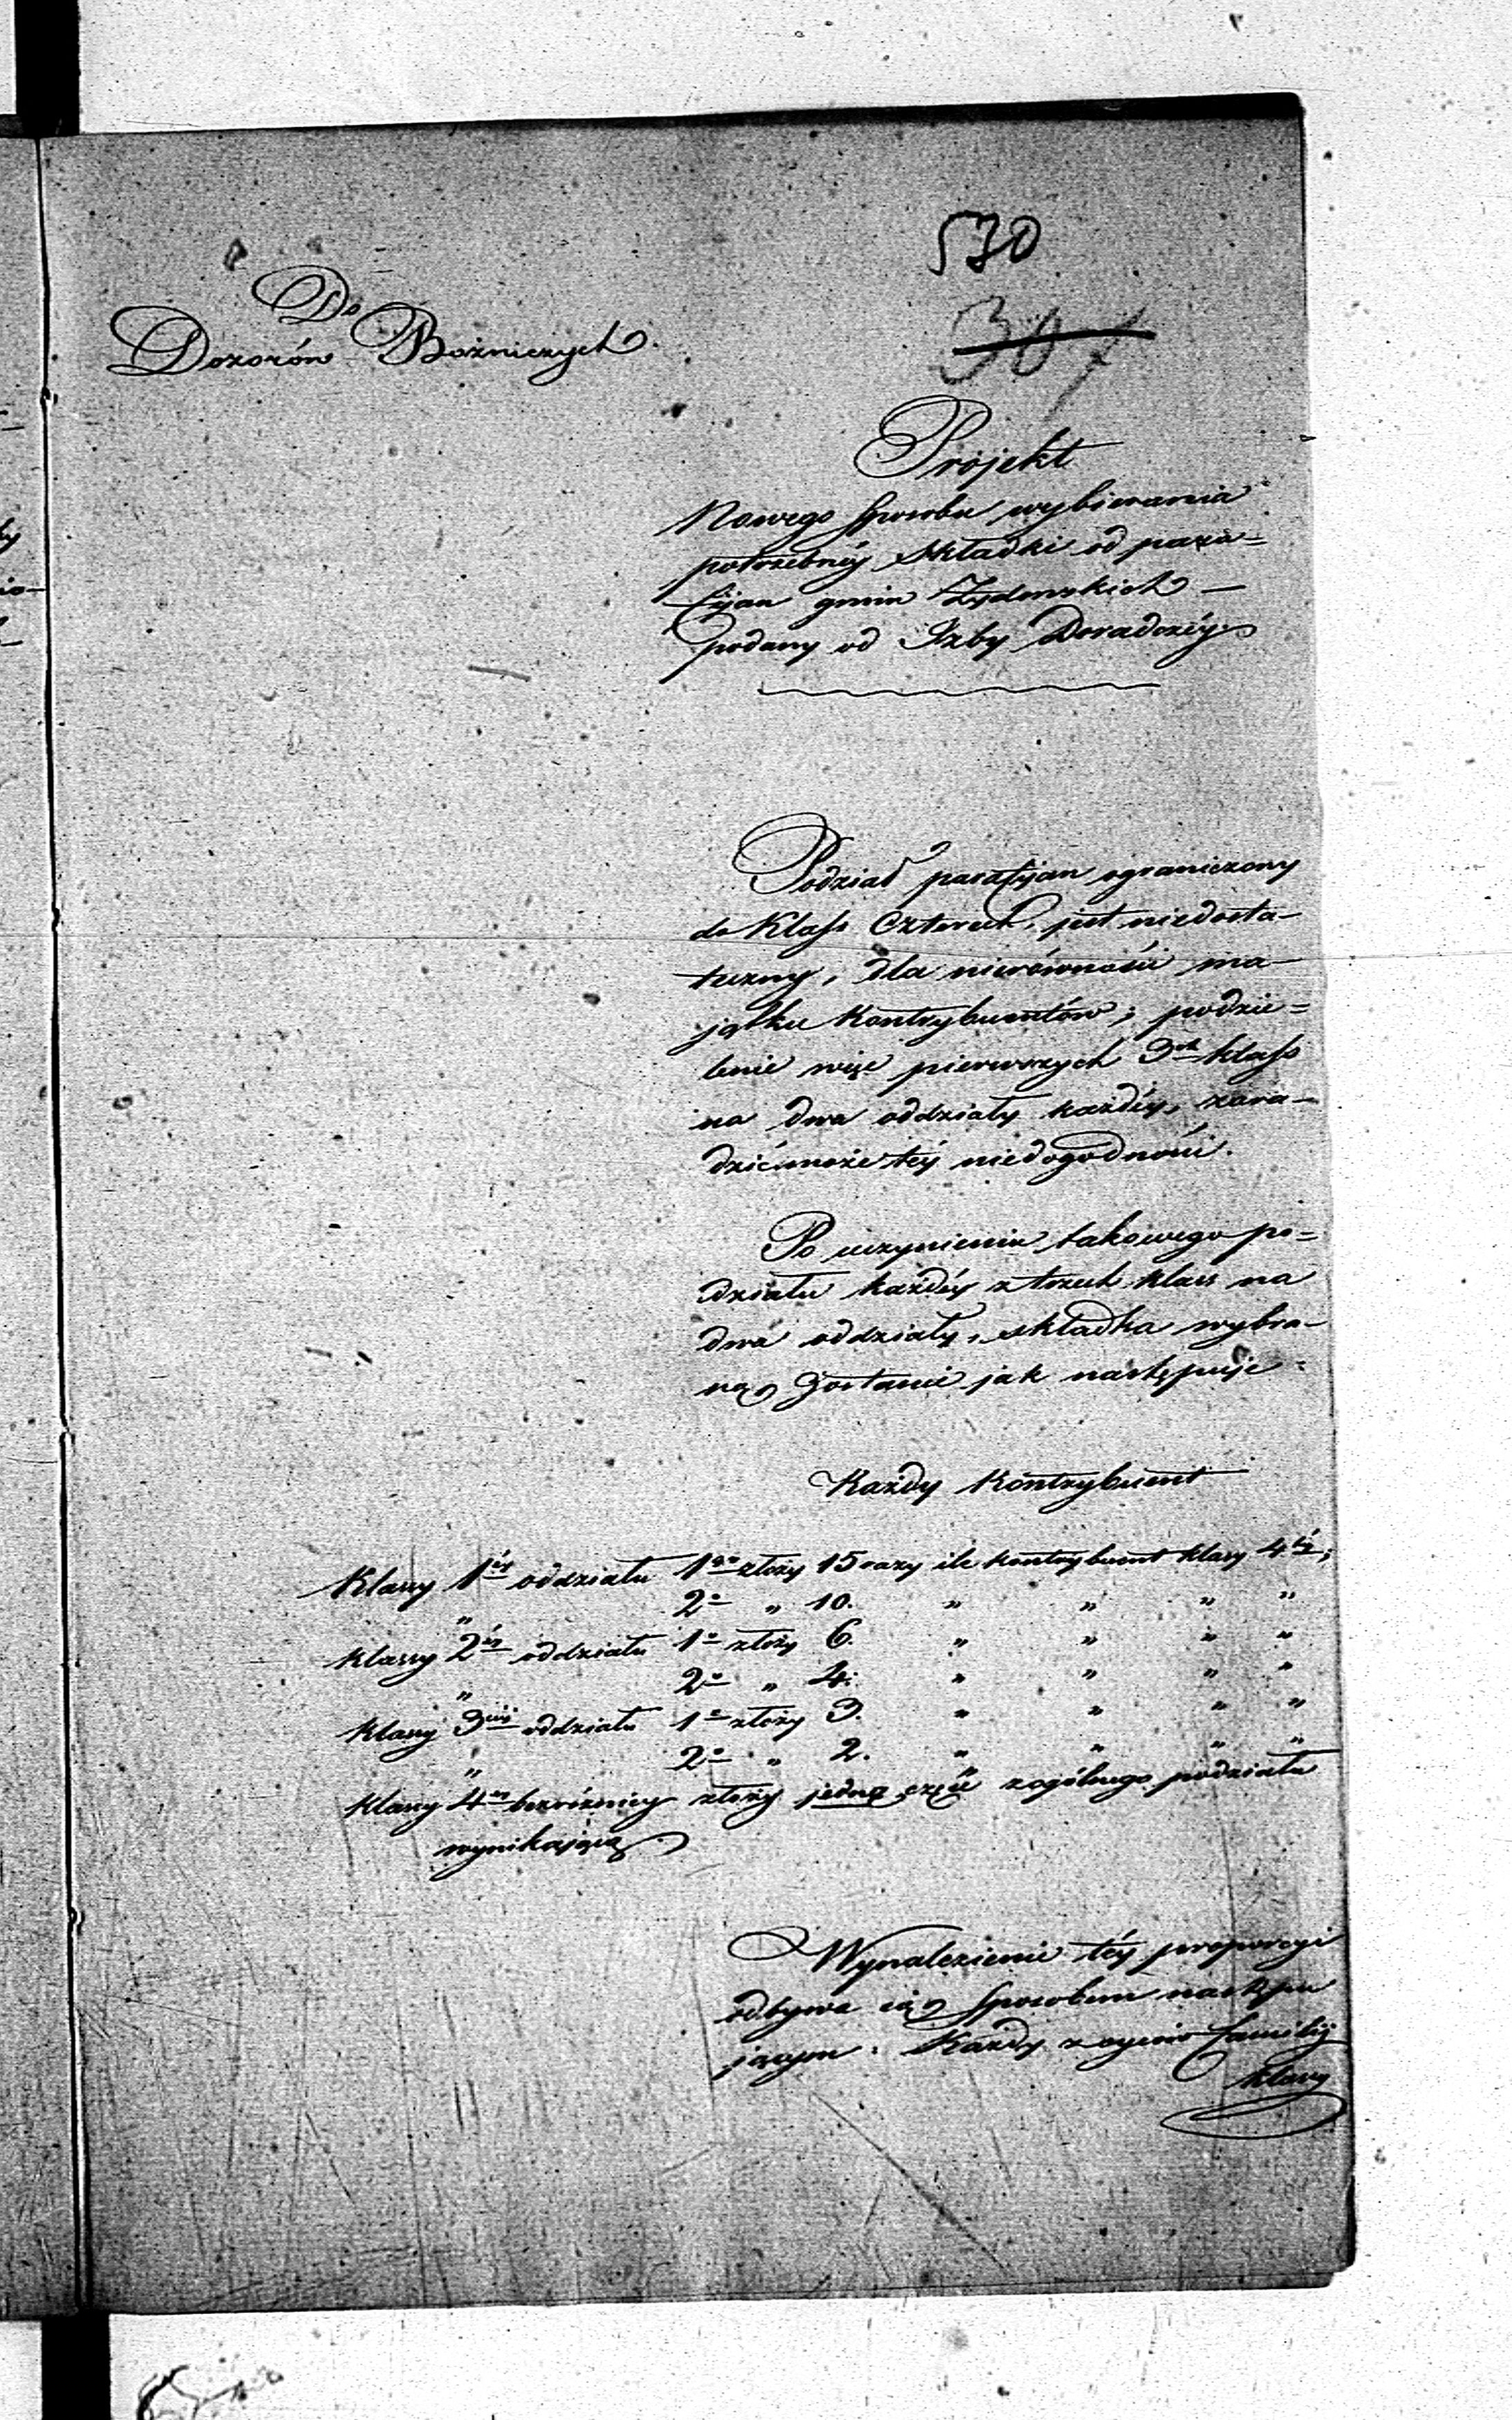 530
307
Do
Dozorów Bożniczych.
Projekt
Nowego sposobu wybierania
potrzebnéy składki od para=
fijan gmin Żydowskich —
podany od Izby Doradczéy.
Podział parafijan ograniczony
do Klass czterech, jest niedosta-
teczny, dla nierówności ma-
jątku Kontrybuentów; podzie=
lenie więc pierwszych 3ch klass
na dwa oddziały każdéy, zara-
dzić może téy niedogodności.
Po uczynieniu takowego po=
działu każdéy z trzech klass na
dwa oddziały, składka wybra-
ną zostanie jak następuje
Każdy Kontrybuent
Klassy 1éy oddziału 1go złoży 15 razy ile kontrybuent klassy 4téy;
" 2o " 10. " " " "
Klassy 2éy oddziału 1o złoży 6. " " " "
" 2o " 4. " " " "
Klassy 3ciéy oddziału 1o złoży 3. " " " "
" 2o " 2. " " " "
Klassy 4éy bez różnicy złoży jedną część z ogólnego podziału
wynikającą.
Wynalezienie téy proporcyi
odbywa się sposobem następu
jącym. Każdy z oyców familij
klassy